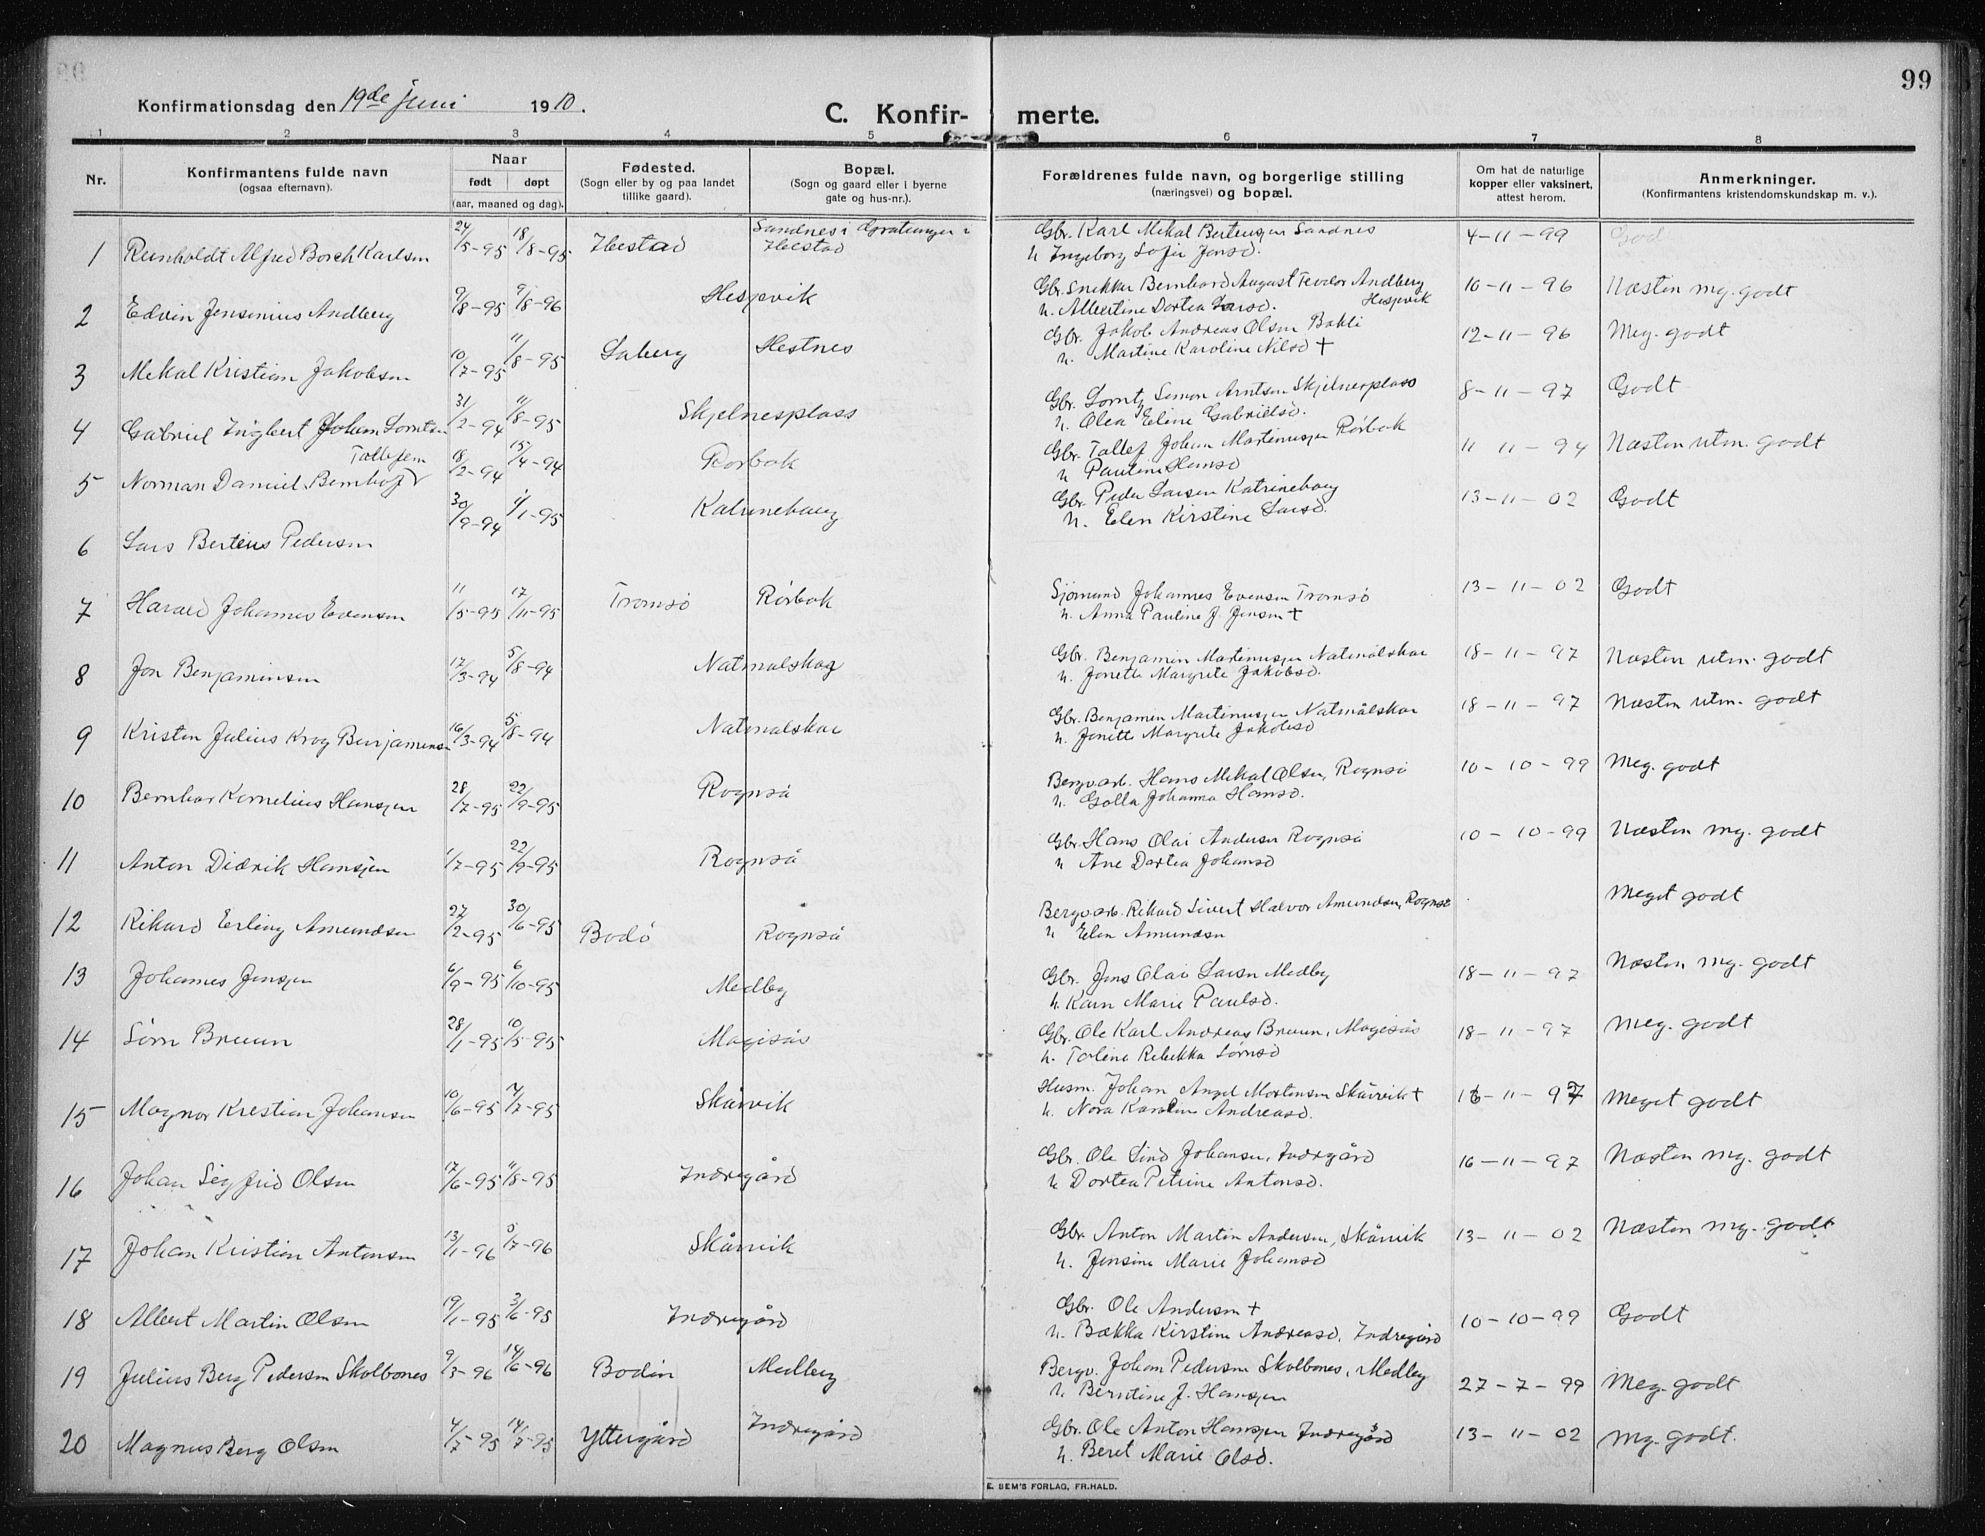 99
Konfirmationsdag den 19de juni 1910.
C. Konfirmerte.
1 2 3 4 5 6 7 8
Nr.
Konfirmantens fulde navn
(ogsaa efternavn).
Naar
født døpt
(aar, maaned og dag).
Fødested.
(Sogn eller by og paa landet
tillike gaard).
Bopæl.
(Sogn og gaard eller i byerne
gate og hus-nr.).
Forældrenes fulde navn, og borgerlige stilling
(næringsvei) og bopæl.
Om hat de naturlige
kopper eller vaksinert,
attest herom.
Anmerkninger.
(Konfirmantens kristendomskundskap m. v.).
1 Reinholdt Alfred Borch Karlsen 24/5-95 18/8-95 Hestad Sandnes i Gratangen i
Hestad Gbr. Karl Mekal Bertensen Sandnes 4-11-99 God
h. Ingeborg Sofie Jensd.
2 Edvin Jensinius Andberg 9/8-95 9/8-96 Hesjevik Gbr. Snekker Bernhard August Teodor Andberg 10-11-96 Næsten mg. godt
h. Albertine Dortea Larsd. Hesjevik
3 Mekal Kristian Jakobsen 10/7-95 11/8-95 Laberg Hestnes Gbr. Jakob Andreas Olsen Bakli 12-11-96 Meg. godt
h. Martine Karoline Nilsd +
4 Gabriel Ingbert Johan Lorntsen 31/2-94 11/8-95 Skjelnesplass Gbr. Lorntz Simon Arntsen Skjelnesplass 8-11-97 Godt
h. Olea Eline Gabrielsd.
5 Norman Daniel Bernhoft Tollefsen 18/2-94 15/4-94 Rørbak Gbr. Tollef Johan Martinussen Rørbak 11 11-94 Næsten utm. godt
h Pauline Hansd
6 Lars Berteus Pedersen 30/9-94 1/1-95 Katrineborg Gbr. Peder Larsen Katrineborg 13-11-02 Godt
h. Elen Kirstine Larsd.
7 Harald Johannes Evensen 11/5-95 17/11-95 Tromsø Rørbak Sjømand Johannes Evensen Tromsø 13-11-02 Godt
h. Anna Pauline J. Jensen +
8 Jon Benjaminsen 17/3-94 5/8-94 Natmalskar Gbr. Benjamin Martinussen Natmålskar 18-11-97 Næsten utm. godt
h. Jonette Margrete Jakobsd.
9 Kristen Julius Krog Benjaminsen 16/3-94 5/8-94 Natmalskar Gbr. Benjamin Martinussen Natmålskar 18-11-97 Næsten utm. godt
h. Jonette Margrete Jakobsd
10 Bernhar Kornelius Hansen 28/7-95 22/9-95 Rognså Bergvarb. Hans Mekal Olsen, Rognså 10-10-99 Meg. godt
h. Golla Johanna Hansd.
11 Anton Didrik Hansen 1/7-95 22/9-95 Rognså Gbr. Hans Olai Andersen Rognså 10-10-99 Næsten mg. godt
h Ane Dortea Johansd
12 Rikard Erling Amundsen 27/2-95 30/6-95 Bodø Rognså Bergvarb. Rikard Sivert Halvor Amundsen, Rognså Meget godt
h Elen Amundsen
13 Johannes Jensen 6/9-95 6/10-95 Medby Gbr. Jens Olai Larsen Medby 18-11-97 Næsten mg. godt
h. Karn Marie Paulsd.
14 Sørn Bruun 28/1-95 10/5-95 Magisås Gbr. Ole Karl Andreas Bruun, Magisås 18-11-97 Meg. godt
h. Toline Rebekka Sørnsd
15 Magnar Kristian Johansen 10/6-95 7/7-95 Skårvik Husm. Johan Angel Mortensen Skårvik + 16-11-97 Meget godt
h. Nora Karoline Andreasd.
16 Johan Sigfrid Olsen 17/6-95 11/8-95 Indregård Gbr. Ole Lind Johansen, Indregård 16-11-97 Næsten mg. godt
h Dortea Petrine Antonsd.
17 Johan Kristian Antonsen 13/1-96 5/7-96 Skårvik Gbr. Anton Martin Andersen, Skårvik 13-11-02 Næsten mg. godt
h. Jensine Marie Johansd
18 Albert Martin Olsen 19/1-95 3/6-95 Indregård Gbr. Ole Andersen + 10-10-99 Godt
h. Bækka Kirstine Andreasd, Indregård
19 Julius Berg Pedersen Skolbones 9/3-96 14/6-96 Bodin Medby Bergv. Johan Pedersen Skolbones, Medby 27-7-99 Meg. godt
h Berntine J. Hansen
20 Magnus Berg Olsen 4/7-95 14/7-95 Yttergård Indregård Gbr. Ole Anton Hansen Indregård 13-11-02 mg. godt.
h. Beret Marie Olsd.
E. SEM'S FORLAG, FR.HALD.